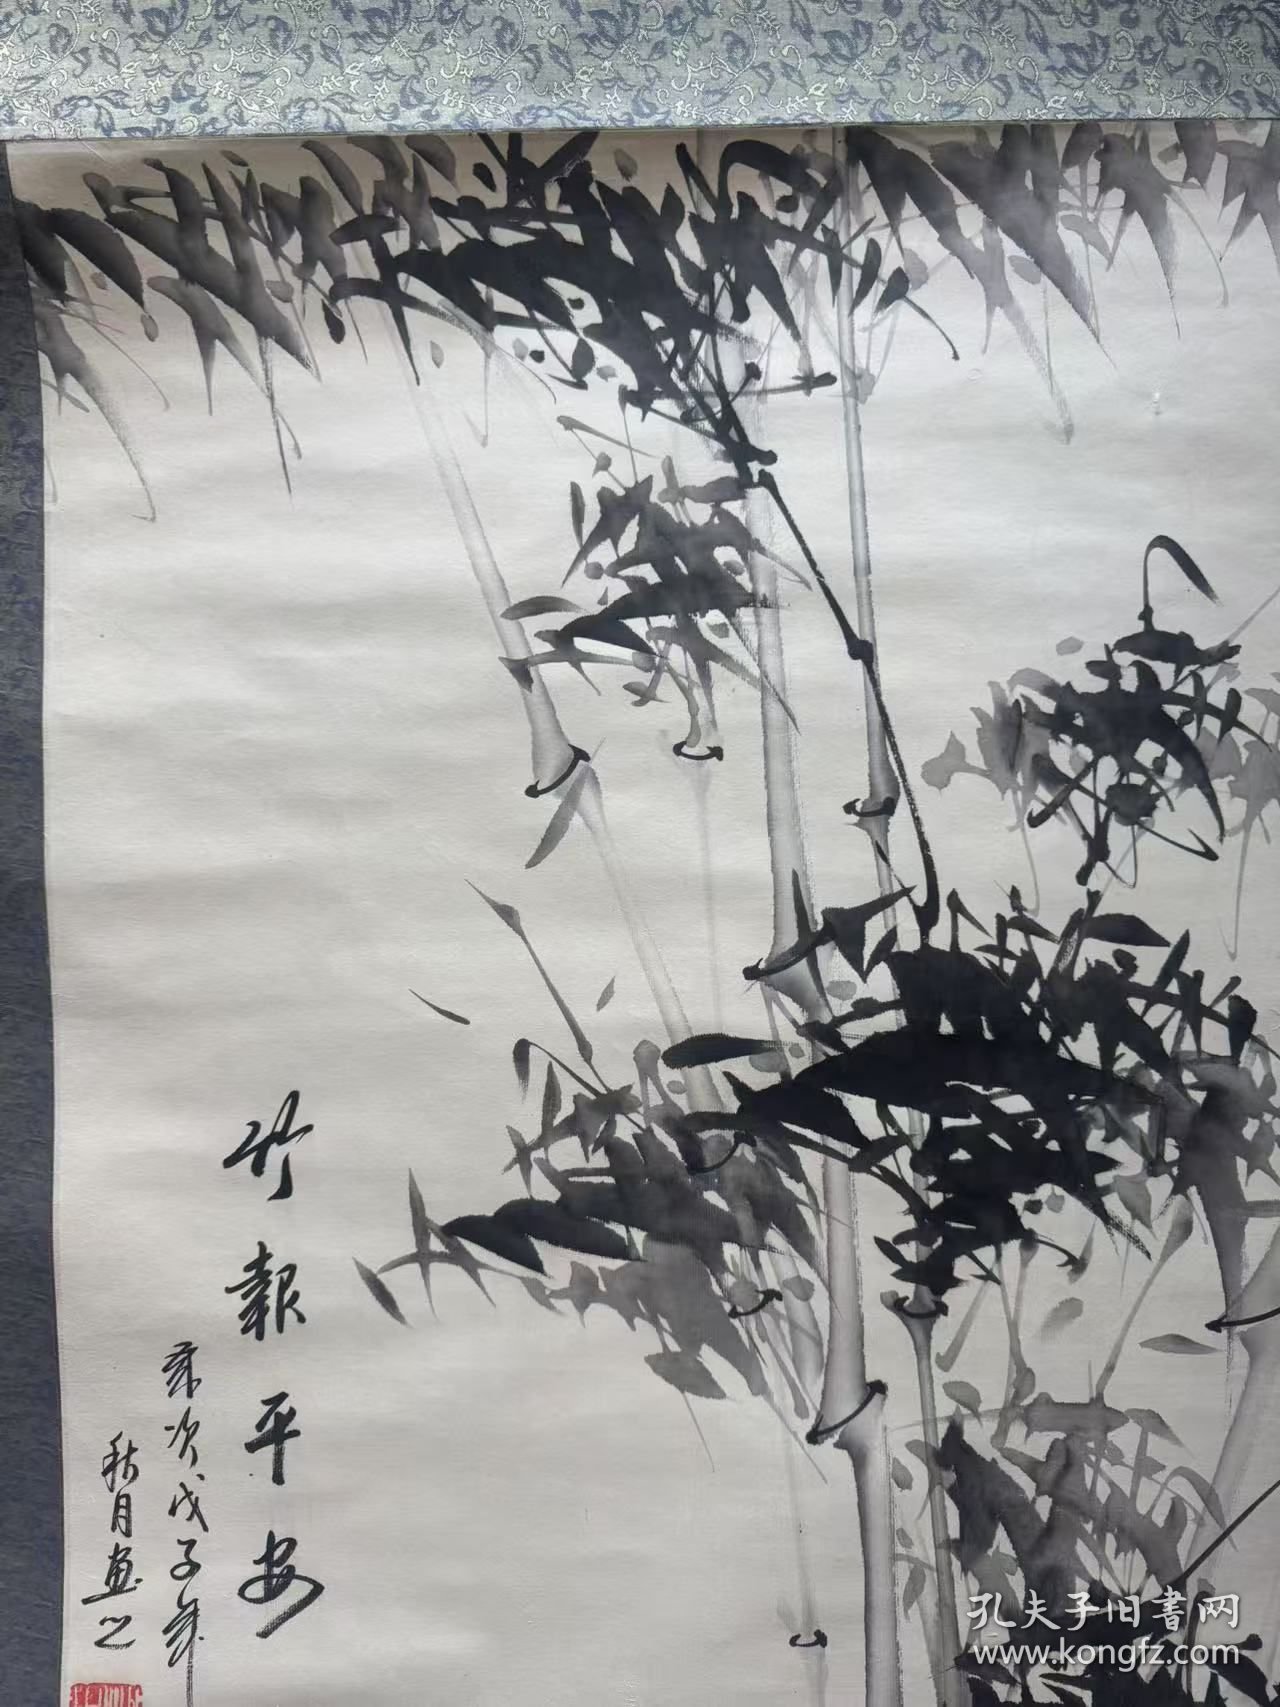 竹報平安
歲次戊子年
秋月画之
孔夫子旧書网
www.kongfz.com